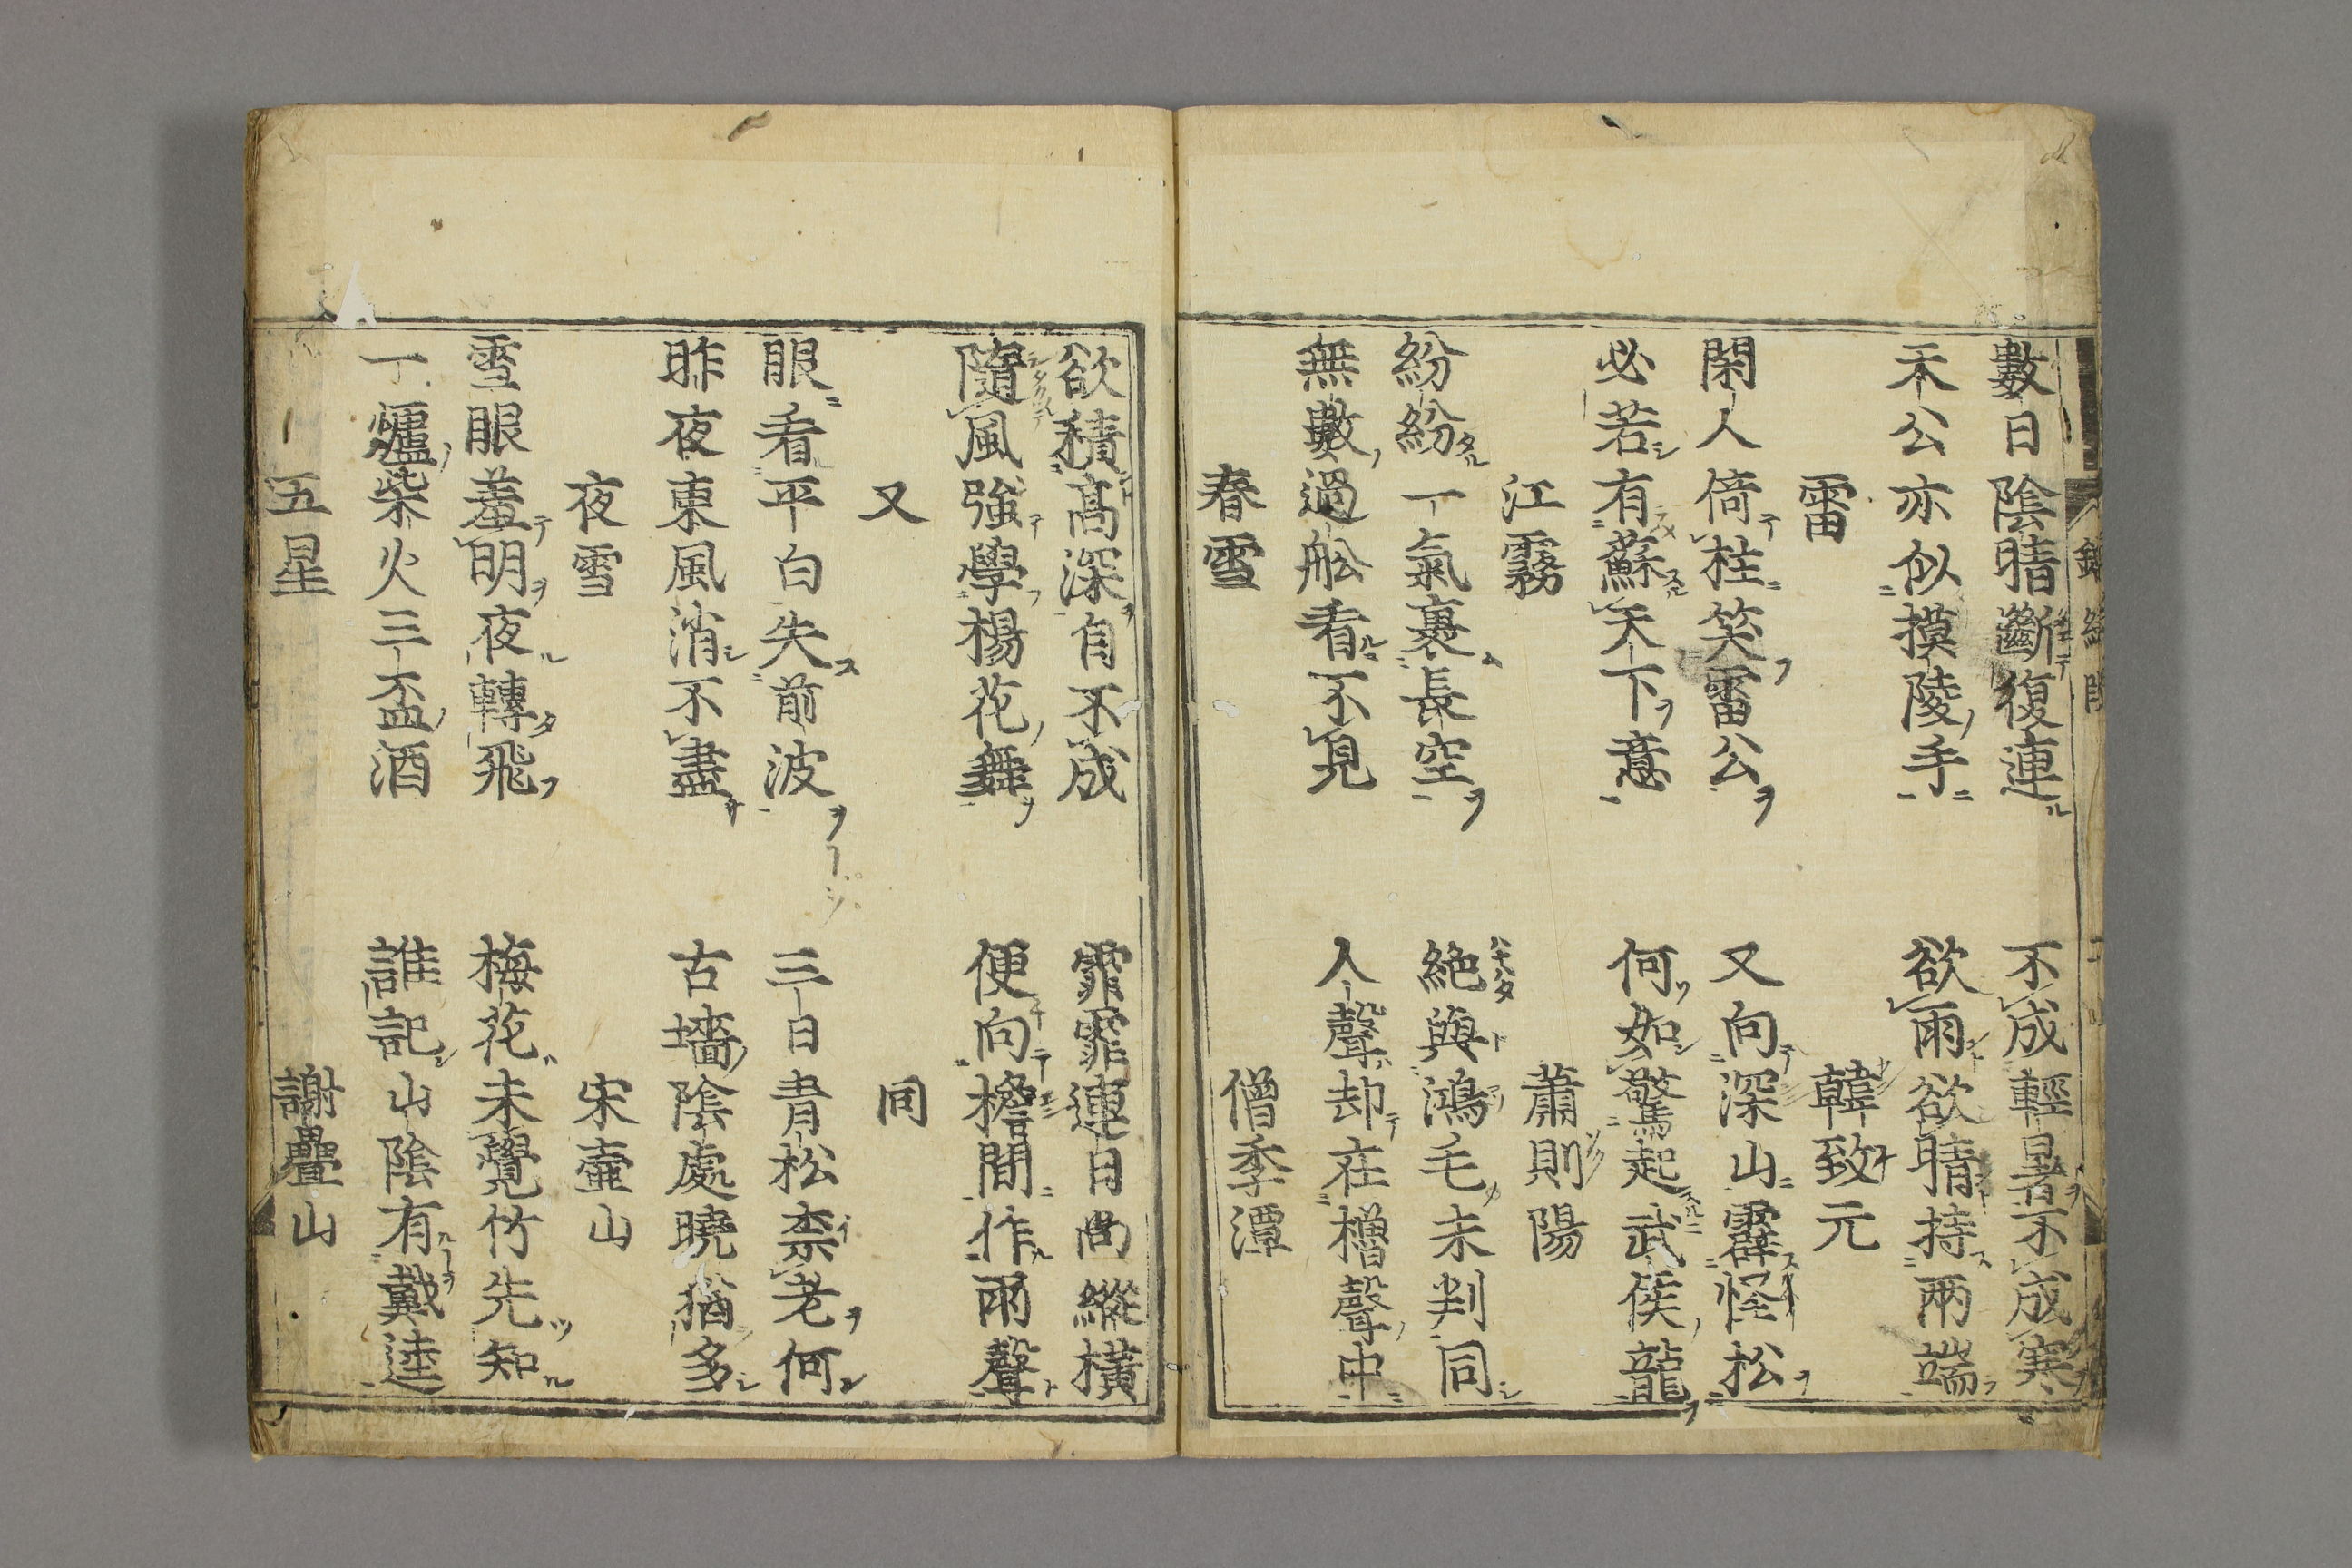 數日陰晴斷復連 不成輕暑不成寒
天公亦似摸陵手 欲雨欲晴持兩端
雷 韓致元
閑人倚柱笑雷公 又向深山霹怪松
必若有蘇天下意 何如驚起武侯龍
江霧 蕭則陽
紛紛一氣裹長空 絶與鴻毛未判同
無數過舩看不見 人聲却在櫓聲中
春雪 僧季潭
欲積高深自不成 霏霏連日尚縱橫
隨風強學楊花舞 便向檐間作雨聲
又 同
眼看平白失前波 三日青松柰老何
昨夜東風消不盡 古墻陰處曉猶多
夜雪 宋壷山
雪眼羞明夜轉飛 梅花未覺竹先知
一爐柴火三盃酒 誰記山陰有戴逵
五星 謝疊山